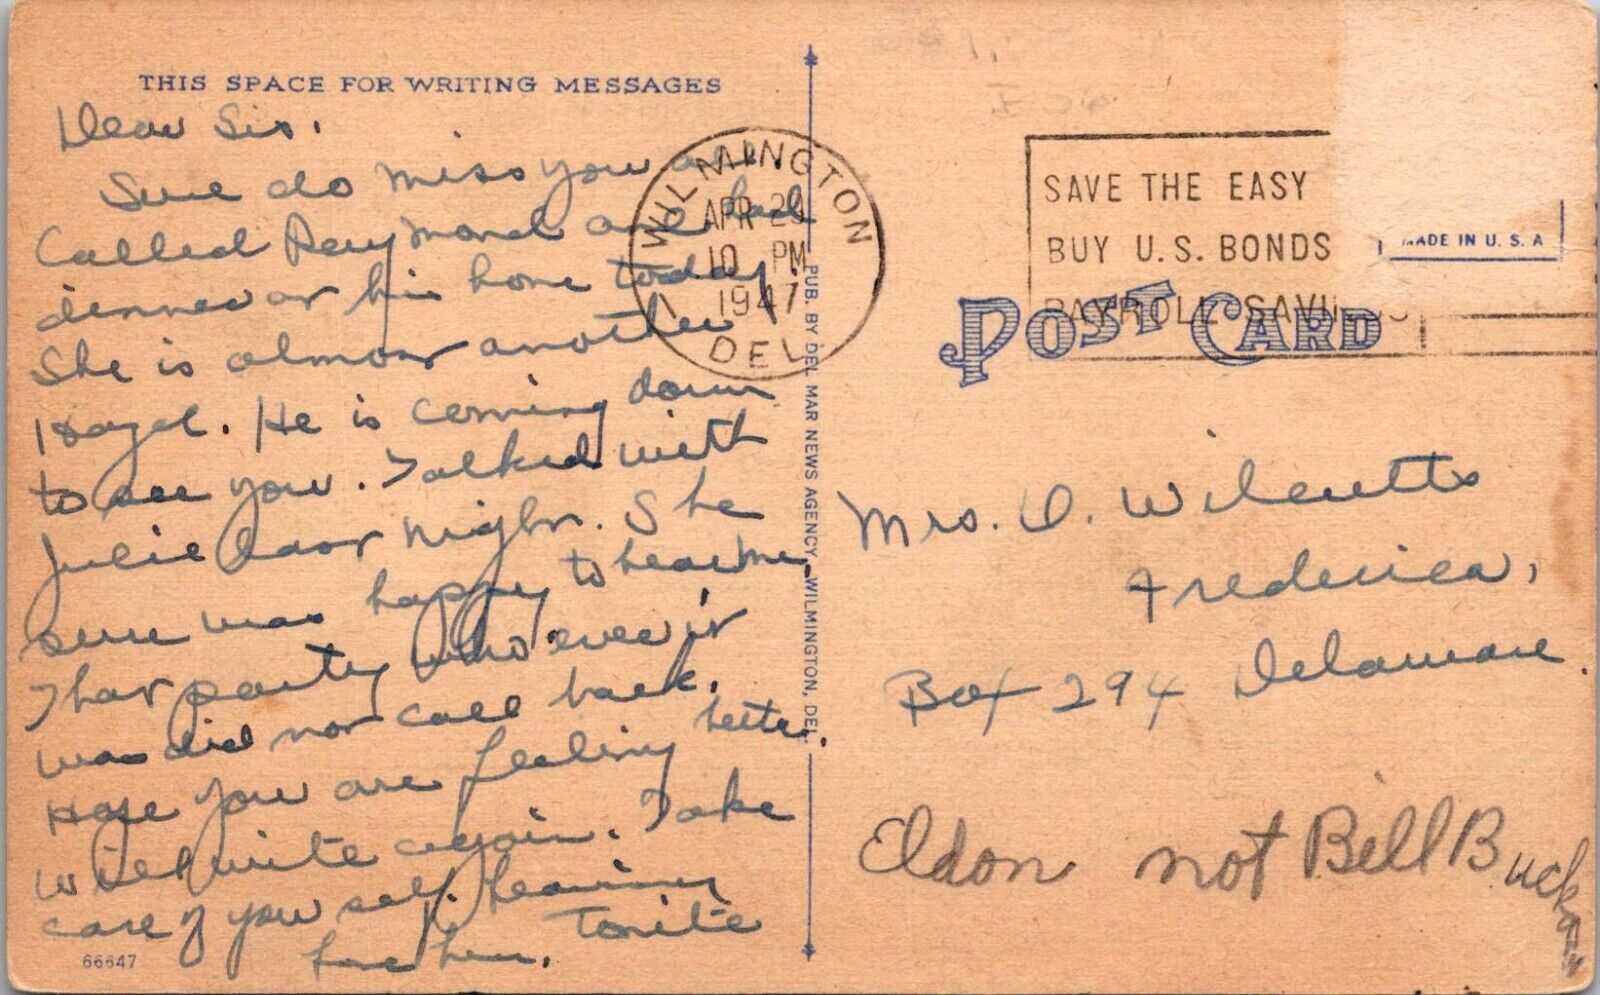 THIS SPACE FOR WRITING MESSAGES
Dear Sis.
Sure do miss you all.
Called Raymond and had
dinner at his home today.
She is almost another
Hazel. He is coming down
to see you. Talked with
Julie last night. She
sure was happy to hear me.
That party who ever it
was did not call back.
Hope you are feeling better.
Will write again. Take
care of yourself. Leaving
here Tonite
66647
WILMINGTON
APR 29
10 PM
1947
DEL
PUB. BY DEL MAR NEWS AGENCY, WILMINGTON, DEL.
SAVE THE EASY
BUY U.S. BONDS
PAYROLL SAVINGS
MADE IN U.S.A
POST CARD
Mrs. O. Wilcutts
Frederica,
Box 294 Delaware.
Eldon not Bell Buckson